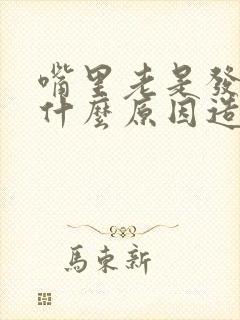 嘴里老是發
什麼原因造
馬東新